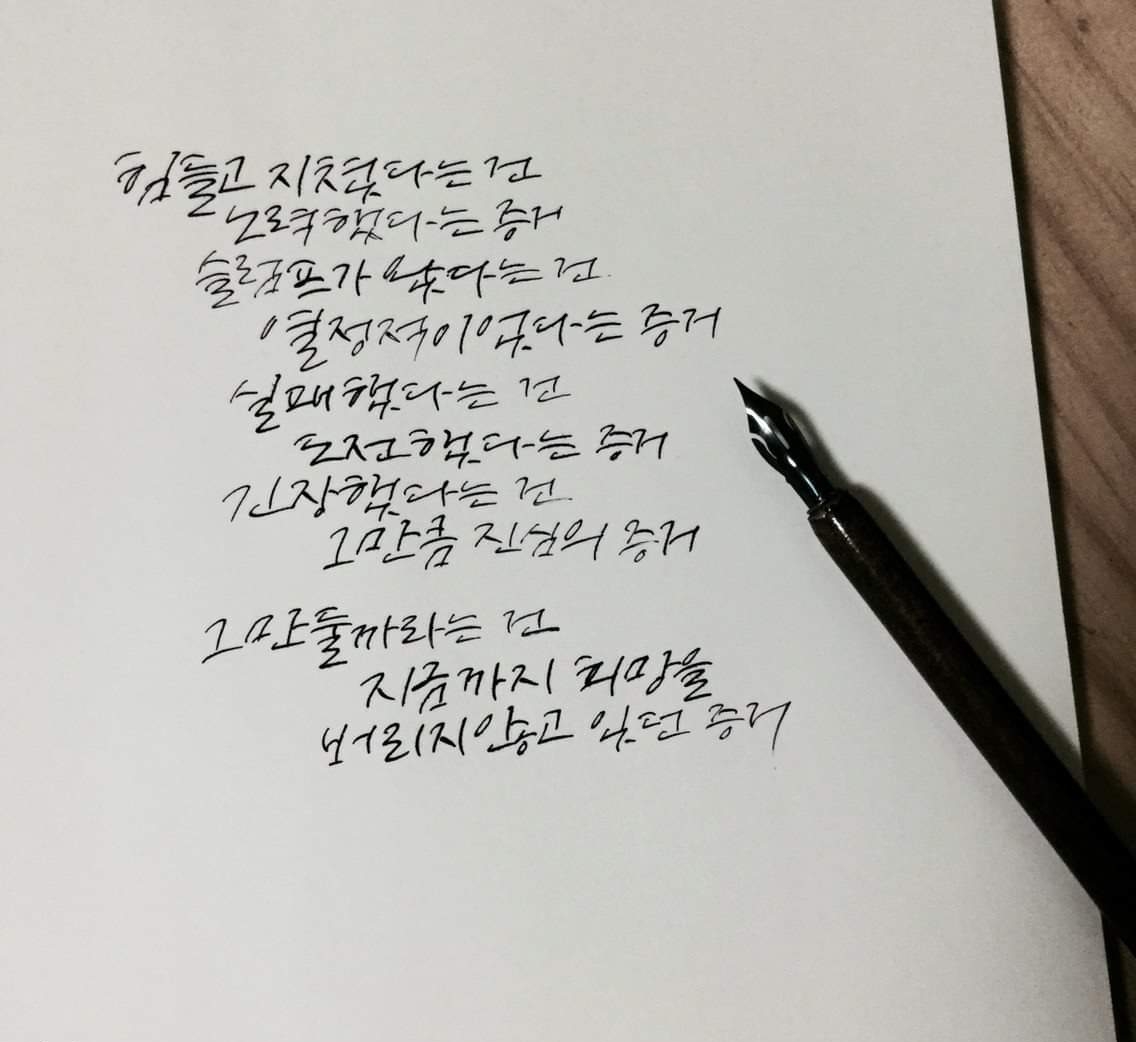 힘들고 지쳤다는 건
노력했다는 증거
슬럼프가 왔다는 건
열정적이었다는 증거
실패했다는 건
도전했다는 증거
긴장했다는 건
그만큼 진심의 증거
그만둘까라는 건
지금까지 희망을
버리지않고 있던 증거